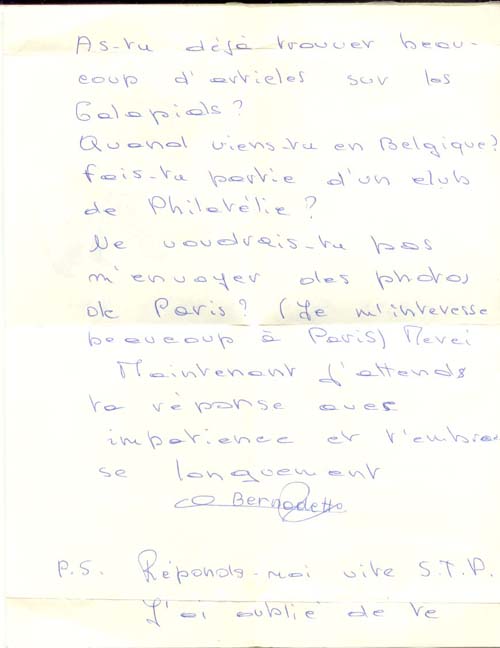 As-tu déjà trouver beau-
coup d'articles sur les
Galapiots?
Quand viens-tu en Belgique?
fais-tu partie d'un club
de Philatélie?
Ne voudrais-tu pas
m'envoyer des photos
de Paris? (Je m'interesse
beaucoup à Paris) Merci
Maintenant j'attends
ta réponse avec
impatience et t'embras
se longuement
Bernadette
P.S. Réponds-moi vite S.T.P.
J'ai oublié de te